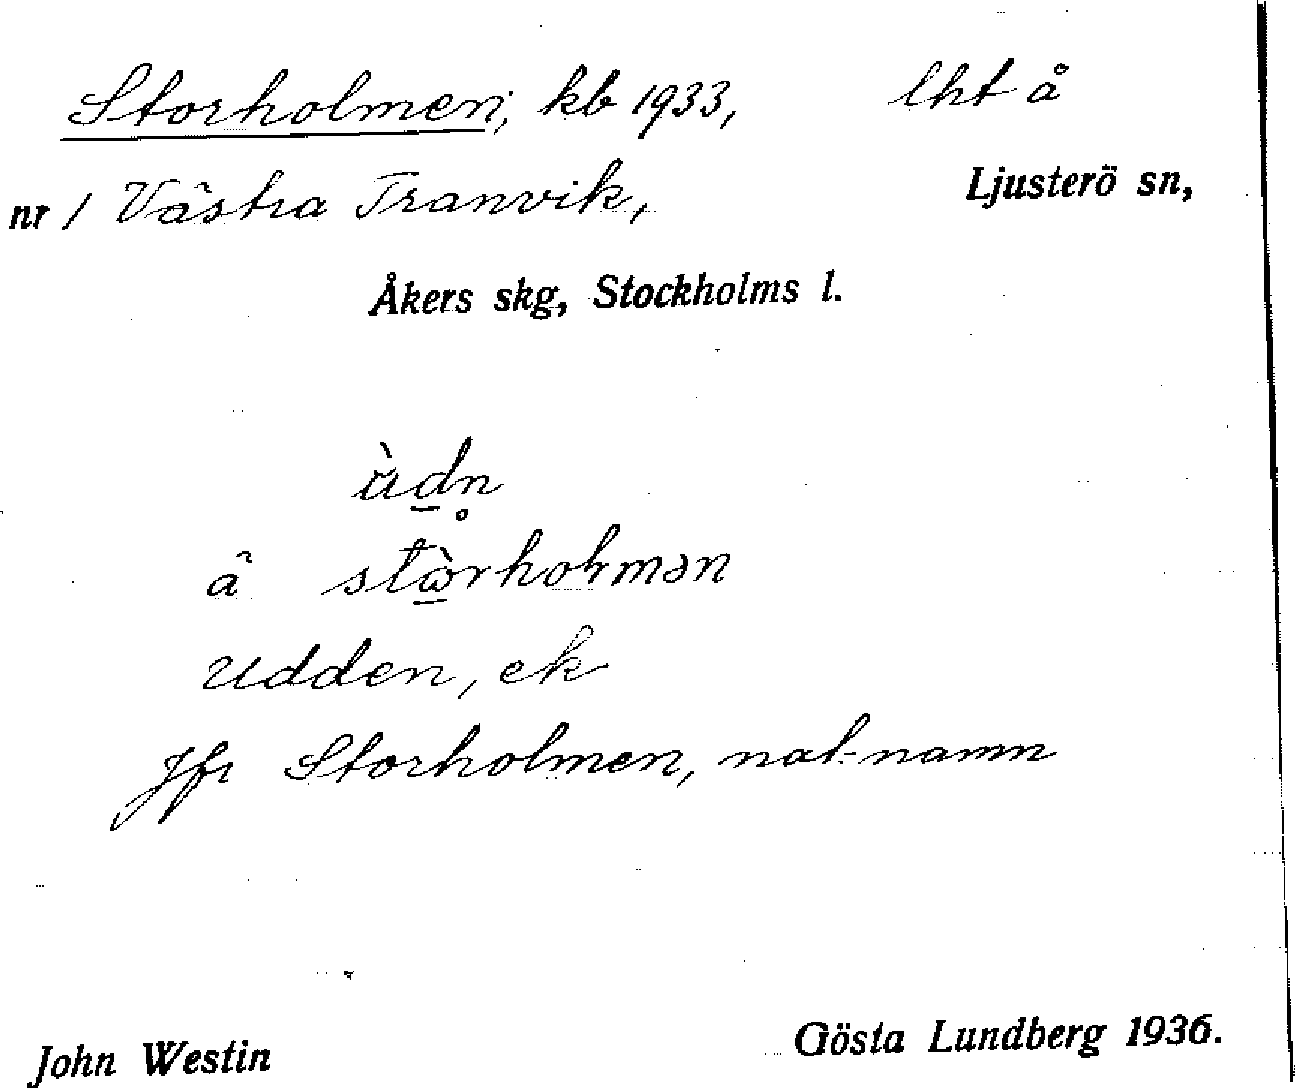 Storholmen; kb 1933, lht å
nr 1 Västra Tranvik, Ljusterö sn,
Åkers skg, Stockholms l.
ùdn̥
å stὼrholmən
Udden, ek
Jfr Storholmen, nat-namn
John Westin Gösta Lundberg 1936.